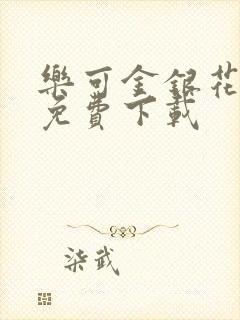 樂可金銀花
免費下載
柒武